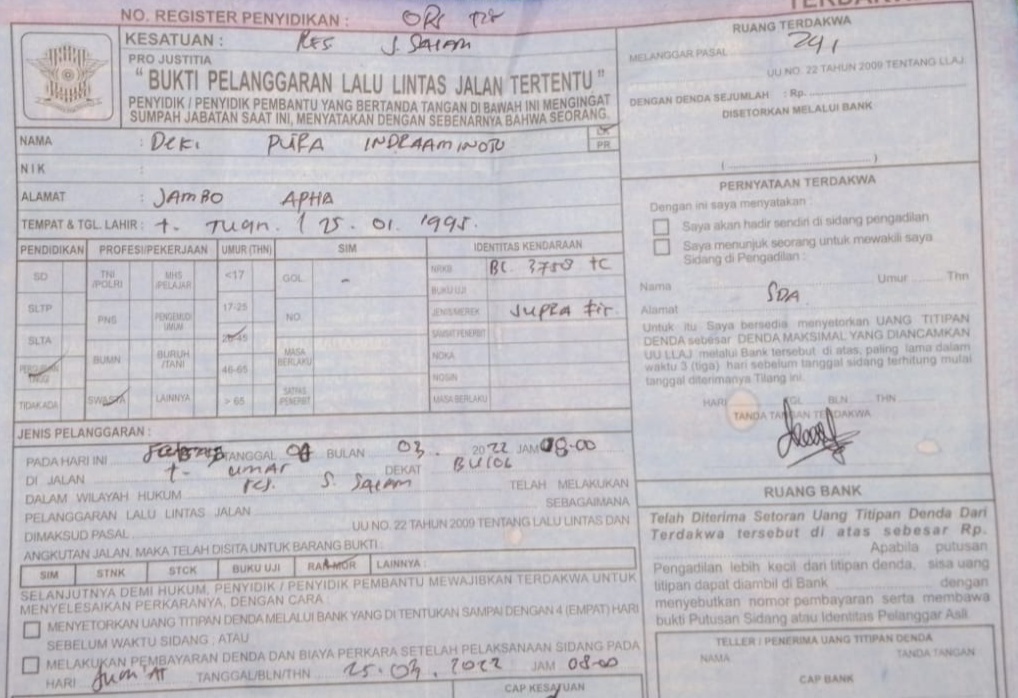 NO. REGISTER PENYIDIKAN :
KESATUAN : RES S. SALAM
PRO JUSTITIA
" BUKTI PELANGGARAN LALU LINTAS JALAN TERTENTU "
PENYIDIK / PENYIDIK PEMBANTU YANG BERTANDA TANGAN DI BAWAH INI MENGINGAT
SUMPAH JABATAN SAAT INI, MENYATAKAN DENGAN SEBENARNYA BAHWA SEORANG.
NAMA : DEKI PUTRA
LK
PR
NIK :
ALAMAT : JAMBO APHA
TEMPAT & TGL. LAHIR : T. TUAN. / 25. 01. 1995.
PENDIDIKAN PROFESI/PEKERJAAN UMUR (THN) SIM IDENTITAS KENDARAAN
SD TNI/POLRI MHS/PELAJAR <17 GOL - NRKB BL 3758 TC
BUKU UJI
SLTP PNS PENGEMUDI UMUM 17-25 NO. JENIS/MEREK SUPRA Fit.
SAMSAT PENERBIT
SLTA BUMN BURUH/TANI 26-45 MASA BERLAKU NOKA
PERGURUAN TINGGI 46-65 NOSIN
TIDAK ADA SWASTA LAINNYA > 65 SATPAS PENERBIT MASA BERLAKU
JENIS PELANGGARAN :
PADA HARI INI TANGGAL BULAN 03. 2022 JAM 08-00
DI JALAN T. UMAR DEKAT BULOG
DALAM WILAYAH HUKUM RES. S. SALAM TELAH MELAKUKAN
PELANGGARAN LALU LINTAS JALAN SEBAGAIMANA
DIMAKSUD PASAL UU NO. 22 TAHUN 2009 TENTANG LALU LINTAS DAN
ANGKUTAN JALAN. MAKA TELAH DISITA UNTUK BARANG BUKTI :
SIM STNK STCK BUKU UJI RANMOR LAINNYA :
SELANJUTNYA DEMI HUKUM, PENYIDIK / PENYIDIK PEMBANTU MEWAJIBKAN TERDAKWA UNTUK
MENYELESAIKAN PERKARANYA, DENGAN CARA :
MENYETORKAN UANG TITIPAN DENDA MELALUI BANK YANG DI TENTUKAN SAMPAI DENGAN 4 (EMPAT) HARI
SEBELUM WAKTU SIDANG : ATAU
MELAKUKAN PEMBAYARAN DENDA DAN BIAYA PERKARA SETELAH PELAKSANAAN SIDANG PADA
HARI Jum'AT TANGGAL/BLN/THN 25.03.2022 JAM 08-00
CAP KESATUAN
RUANG TERDAKWA
MELANGGAR PASAL 291
UU NO. 22 TAHUN 2009 TENTANG LLAJ
DENGAN DENDA SEJUMLAH : Rp.
DISETORKAN MELALUI BANK
( )
PERNYATAAN TERDAKWA
Dengan ini saya menyatakan :
Saya akan hadir sendiri di sidang pengadilan
Saya menunjuk seorang untuk mewakili saya
Sidang di Pengadilan :
Nama Umur Thn
SDA
Alamat
Untuk itu Saya bersedia menyetorkan UANG TITIPAN
DENDA sebesar DENDA MAKSIMAL YANG DIANCAMKAN
UU LLAJ melalui Bank tersebut di atas, paling lama dalam
waktu 3 (tiga) hari sebelum tanggal sidang terhitung mulai
tanggal diterimanya Tilang ini.
HARI TGL BLN THN
TANDA TANGAN TERDAKWA
RUANG BANK
Telah Diterima Setoran Uang Titipan Denda Dari
Terdakwa tersebut di atas sebesar Rp.
Apabila putusan
Pengadilan lebih kecil dari titipan denda, sisa uang
titipan dapat diambil di Bank dengan
menyebutkan nomor pembayaran serta membawa
bukti Putusan Sidang atau Identitas Pelanggar Asli.
TELLER / PENERIMA UANG TITIPAN DENDA
NAMA TANDA TANGAN
CAP BANK